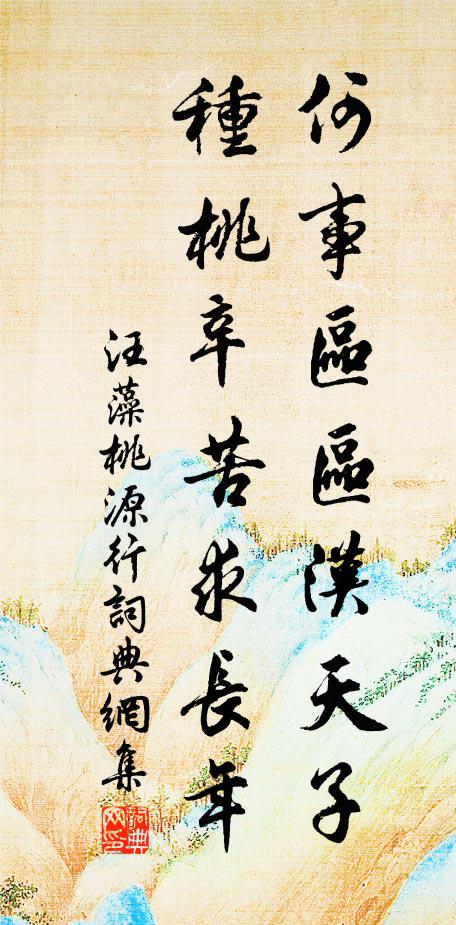 何事區區漢天子
種桃辛苦求長年
汪藻桃源行詞典網集
詞典網印